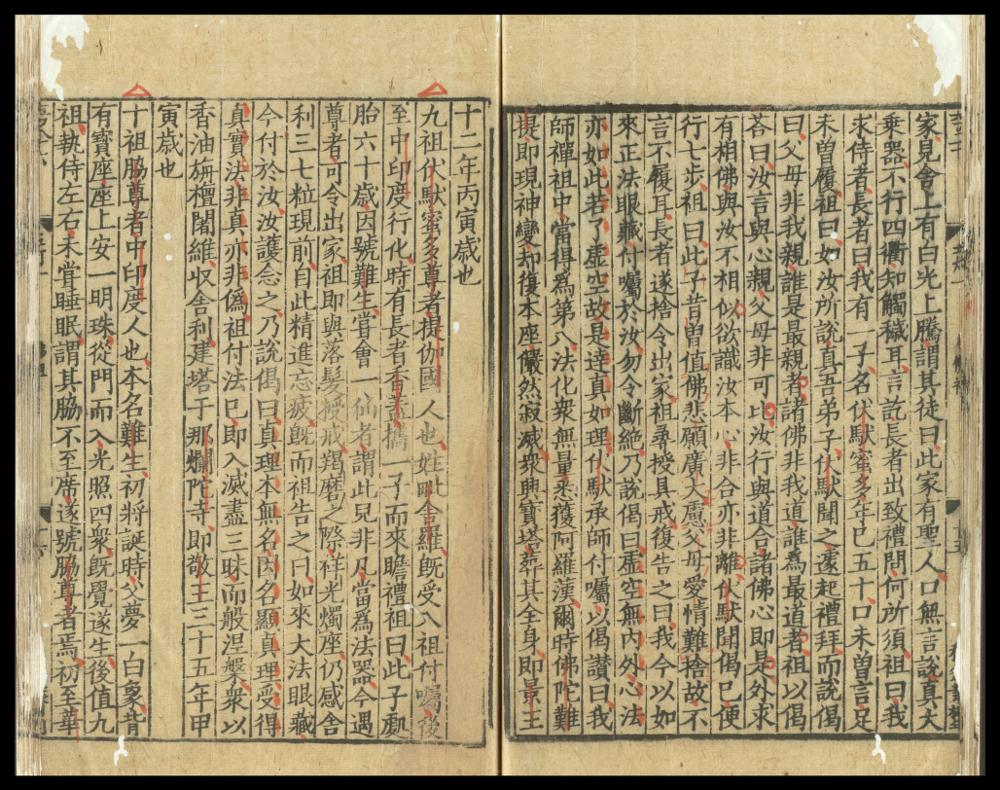 家見舍上有白光上騰謂其徒曰此家有聖人口無言說真大
乗器不行四衢知觸穢耳言訖長者出致禮問何所須祖曰我
求侍者長者曰我有一子名伏馱蜜多年已五十口未曽言足
未曽履祖曰如汝所說真吾弟子伏馱聞之遽起禮拜而說偈
曰父母非我親誰是最親者諸佛非我道誰爲最道者祖以偈
荅曰汝言與心親父母非可比汝行與道合諸佛心即是外求
有相佛與汝不相似欲識汝本心非合亦非離伏馱聞偈已便
行七步祖曰此子昔曽值佛悲願廣大慮父母愛情難捨故不
言不履耳長者遂捨令出家祖尋授具戒復告之曰我今以如
來正法眼藏付囑於汝勿令斷絶乃說偈曰虛空無内外心法
亦如此若了虛空故是達真如理伏馱承師付囑以偈讚曰我
師禪祖中當得爲第八法化衆無量悉獲阿羅漢爾時佛陀難
提即現神變却復本座儼然寂滅衆興寶塔葬其全身即景王
十二年丙寅歳也
九祖伏馱蜜多尊者提伽國人也姓毗舍羅既受八祖付囑後
至中印度行化時有長者香蓋携一子而來瞻禮祖曰此子處
胎六十歳因號難生嘗會一仙者謂此兒非凡當爲法器今遇
尊者可令出家祖即與落髮授戒羯磨之際祥光燭座仍感舍
利三七粒現前自此精進忘疲既而祖告之曰如來大法眼藏
今付於汝汝護念之乃說偈曰真理本無名因名顯真理受得
真實法非真亦非僞祖付法已即入滅盡三昧而般涅槃衆以
香油旃檀闍維收舍利建塔于那爛陀寺即敬王三十五年甲
寅歳也
十祖脇尊者中印度人也本名難生初將誕時父夢一白象背
有寶座座上安一明珠從門而入光照四衆既覺遂生後值九
祖執侍左右未嘗睡眠謂其脇不至席遂號脇尊者焉初至華